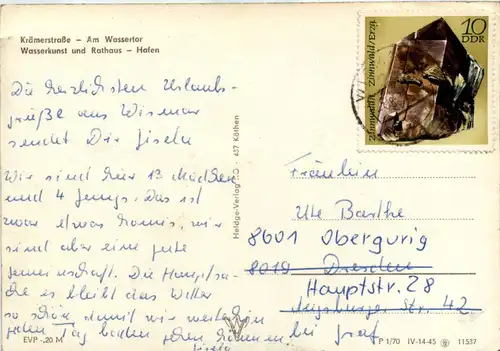 Krämerstraße – Am Wassertor
Wasserkunst und Rathaus – Hafen
Die herzlichsten Urlaubs-
grüße aus Wismar
sendet Dir Gisela
Wir sind hier 13 Mädchen
und 4 Jungs. Das ist
zwar etwas komisch, wir
sind aber eine gute
Gemeinschaft. Die Hauptsa-
che es bleibt das Wetter
so schön damit wir weiterhin
jeden Tag baden gehen können.
Gisela
EVP -,20 M
Heldge-Verlag KG · 437 Köthen
10
DDR
Zinnwaldit Zinnwald/Erzg.
Fräulein
Ute Barthe
8601 Obergurig
8019 Dresden
Hauptstr. 28
Augsburger Str. 42
bei Graf
P 1/70 IV-14-45 11537